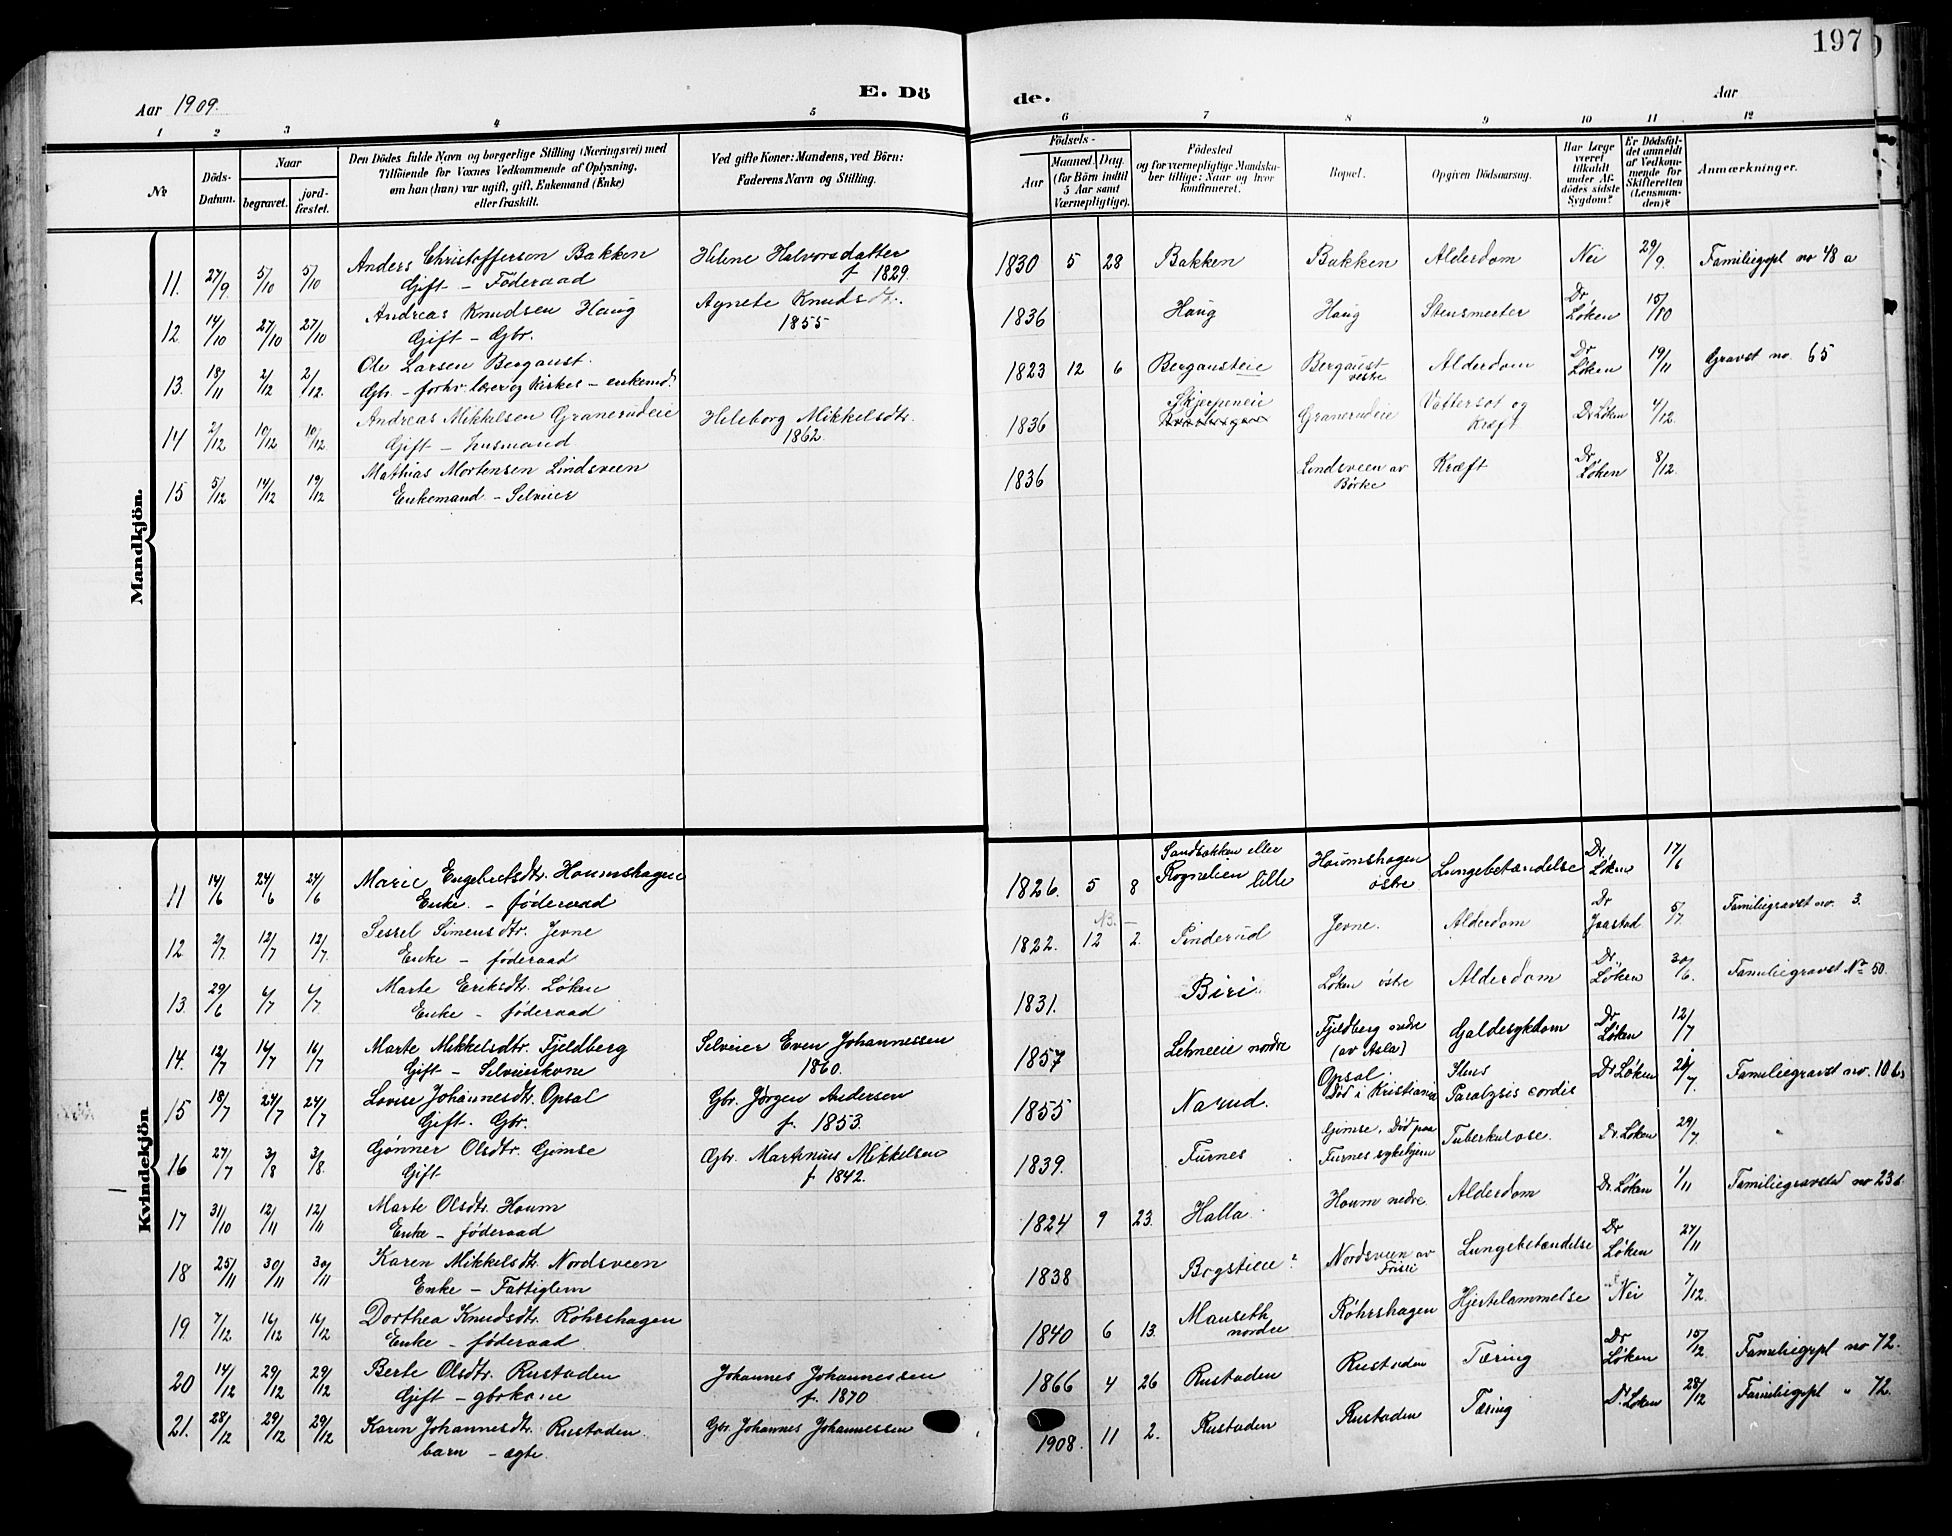 197
Aar 1909.
E. Dö
de.
Aar
1 2 3 4 5 6 7 8 9 10 11 12
No
Döds-Datum.
Naar
begravet.
jord-fæstet.
Den Dödes fulde Navn og borgerlige Stilling (Næringsvei) med
Tilföiende for Voxnes Vedkommende af Oplysning,
om han (hun) var ugift, gift, Enkemand (Enke)
eller fraskilt.
Ved gifte Koner: Mandens, ved Börn:
Faderens Navn og Stilling.
Födsels-
Aar
Maaned. Dag.
(for Börn indtil
5 Aar samt
Værnepligtige).
Födested
og for værnepligtige Mandska-
ber tillige: Naar og hvor
konfirmeret.
Bopæl.
Opgiven Dödsaarsag.
Har Læge
været
tilkaldt
under Af-
dödes sidste
Sygdom?
Er Dödsfal-
det anmeldt
af Vedkom-
mende for
Skifteretten
(Lensman-
den)?
Anmærkninger.
Mandkjön.
11. 27/9 5/10 5/10 Anders Christoffersen Bakken Helene Halvorsdatter 1830 5 28 Bakken Bakken Alderdom Nei 29/9. Familiegpl no 48 a
Gift - Föderaad f 1829.
12 14/10 27/10 27/10 Andreas Knudsen Haug Agnete Knudsdt. 1836 Haug Haug Dr Løken 15/10
Gift - Gbr. 1855
13. 18/11 2/12 2/12. Ole Larsen Bergaust. 1823 12 6 Bergausteie Bergaust vestre Alderdom Dr Løken 19/11 Gravst no. 65
Gbr - forhv. lærer og kirkes - enkemd.
14 2/12 10/12 10/12 Andreas Mikkelsen Granerudeie Heleborg Mikkelsdtr. 1836 Skjerpeneie Granerudeie Vattersot og Kræft Dr Løken 4/12
Gift - Husmand 1862.
15 5/12 14/12 19/12 Mathias Mortensen Lindsveen 1836 Lindsveen av Börke Kræft Dr Løken 8/12.
Enkemand - Selveier
Kvindekjön
11 14/6 24/6 24/6 Marie Engebretsdtr. Houmshagen 1826. 5 8 Sandbakken eller Rognelien lille Houmshagen östre Lungebetændelse Dr. Løken 17/6
Enke. - föderaad
12. 2/7 12/7 12/7. Sessel Simensdtr. Jevne 1822. 12 2. Pinderud Jevne. Alderdom Dr 5/7 Familiegravst no. 3.
Enke - föderaad
13. 29/6 4/7 4/7. Marte Eriksdtr. Løken 1831. Biri. Løken östre Alderdom Dr. Løken 30/6. Familiegravst No 50.
Enke - föderaad
14. 12/7 14/7 16/7 Marte Mikkelsdtr. Fjeldberg Selveier Even Johannessen 1857 Lehneeie nordre Fjeldberg nedre (av Asla) Galdesykdom Dr Løken 12/7
Gift - Selveierkone 1860.
15 18/7 24/7 24/7 Lovise Johannesdtr. Opsal Gbr. Jørgen Andersen 1855 Narud. Opsal. Död i Kristiania Paralysis cordis Dr Løken 20/7 Familiegravst no. 10 b
Gift. Gbr. f. 1853.
16 27/7 3/8 3/8. Gønner Olsdtr. Gimse Gbr. Martinius Mikkelsen 1839. Furnes Gimse. Död paa Furnes sykehjem Tuberkulose. Dr. Løken 29/7
Gift f 1842.
17 31/10 12/11 12/11 Marte Olsdtr. Houm 1824 9 23. Halla. Houm nedre. Alderdom Dr. Løken 1/11 Familiegravsted no 23 b
Enke - föderaad
18 25/11 30/11 30/11 Karen Mikkelsdtr. Nordsveen 1838 Bogstieie? Nordsveen av Frisli Lungebetændelse Dr Løken 27/11
Enke - Fattiglem
19. 7/12 16/12 16/12 Dorthea Knudsdtr. Röhrshagen 1840 6 13. Mauseth nordre Röhrshagen Hjertelammelse Nei 7/12.
Enke - föderaad.
20 14/12 29/12 29/12 Berte Olsdtr. Rustaden Johannes Johannessen 1866 4 26 Rustaden Rustaden Tæring Dr Løken 15/12. Familiegpl no 72.
Gift - gbrkone f. 1870
21. 28/12 29/12 29/12 Karen Johannesdtr. Rustaden. Gbr. Johannes Johannessen 1908. 11 2. Rustaden Rustaden Tæring Dr. Løken 28/12 Familiegpl " 72.
barn - ægte.